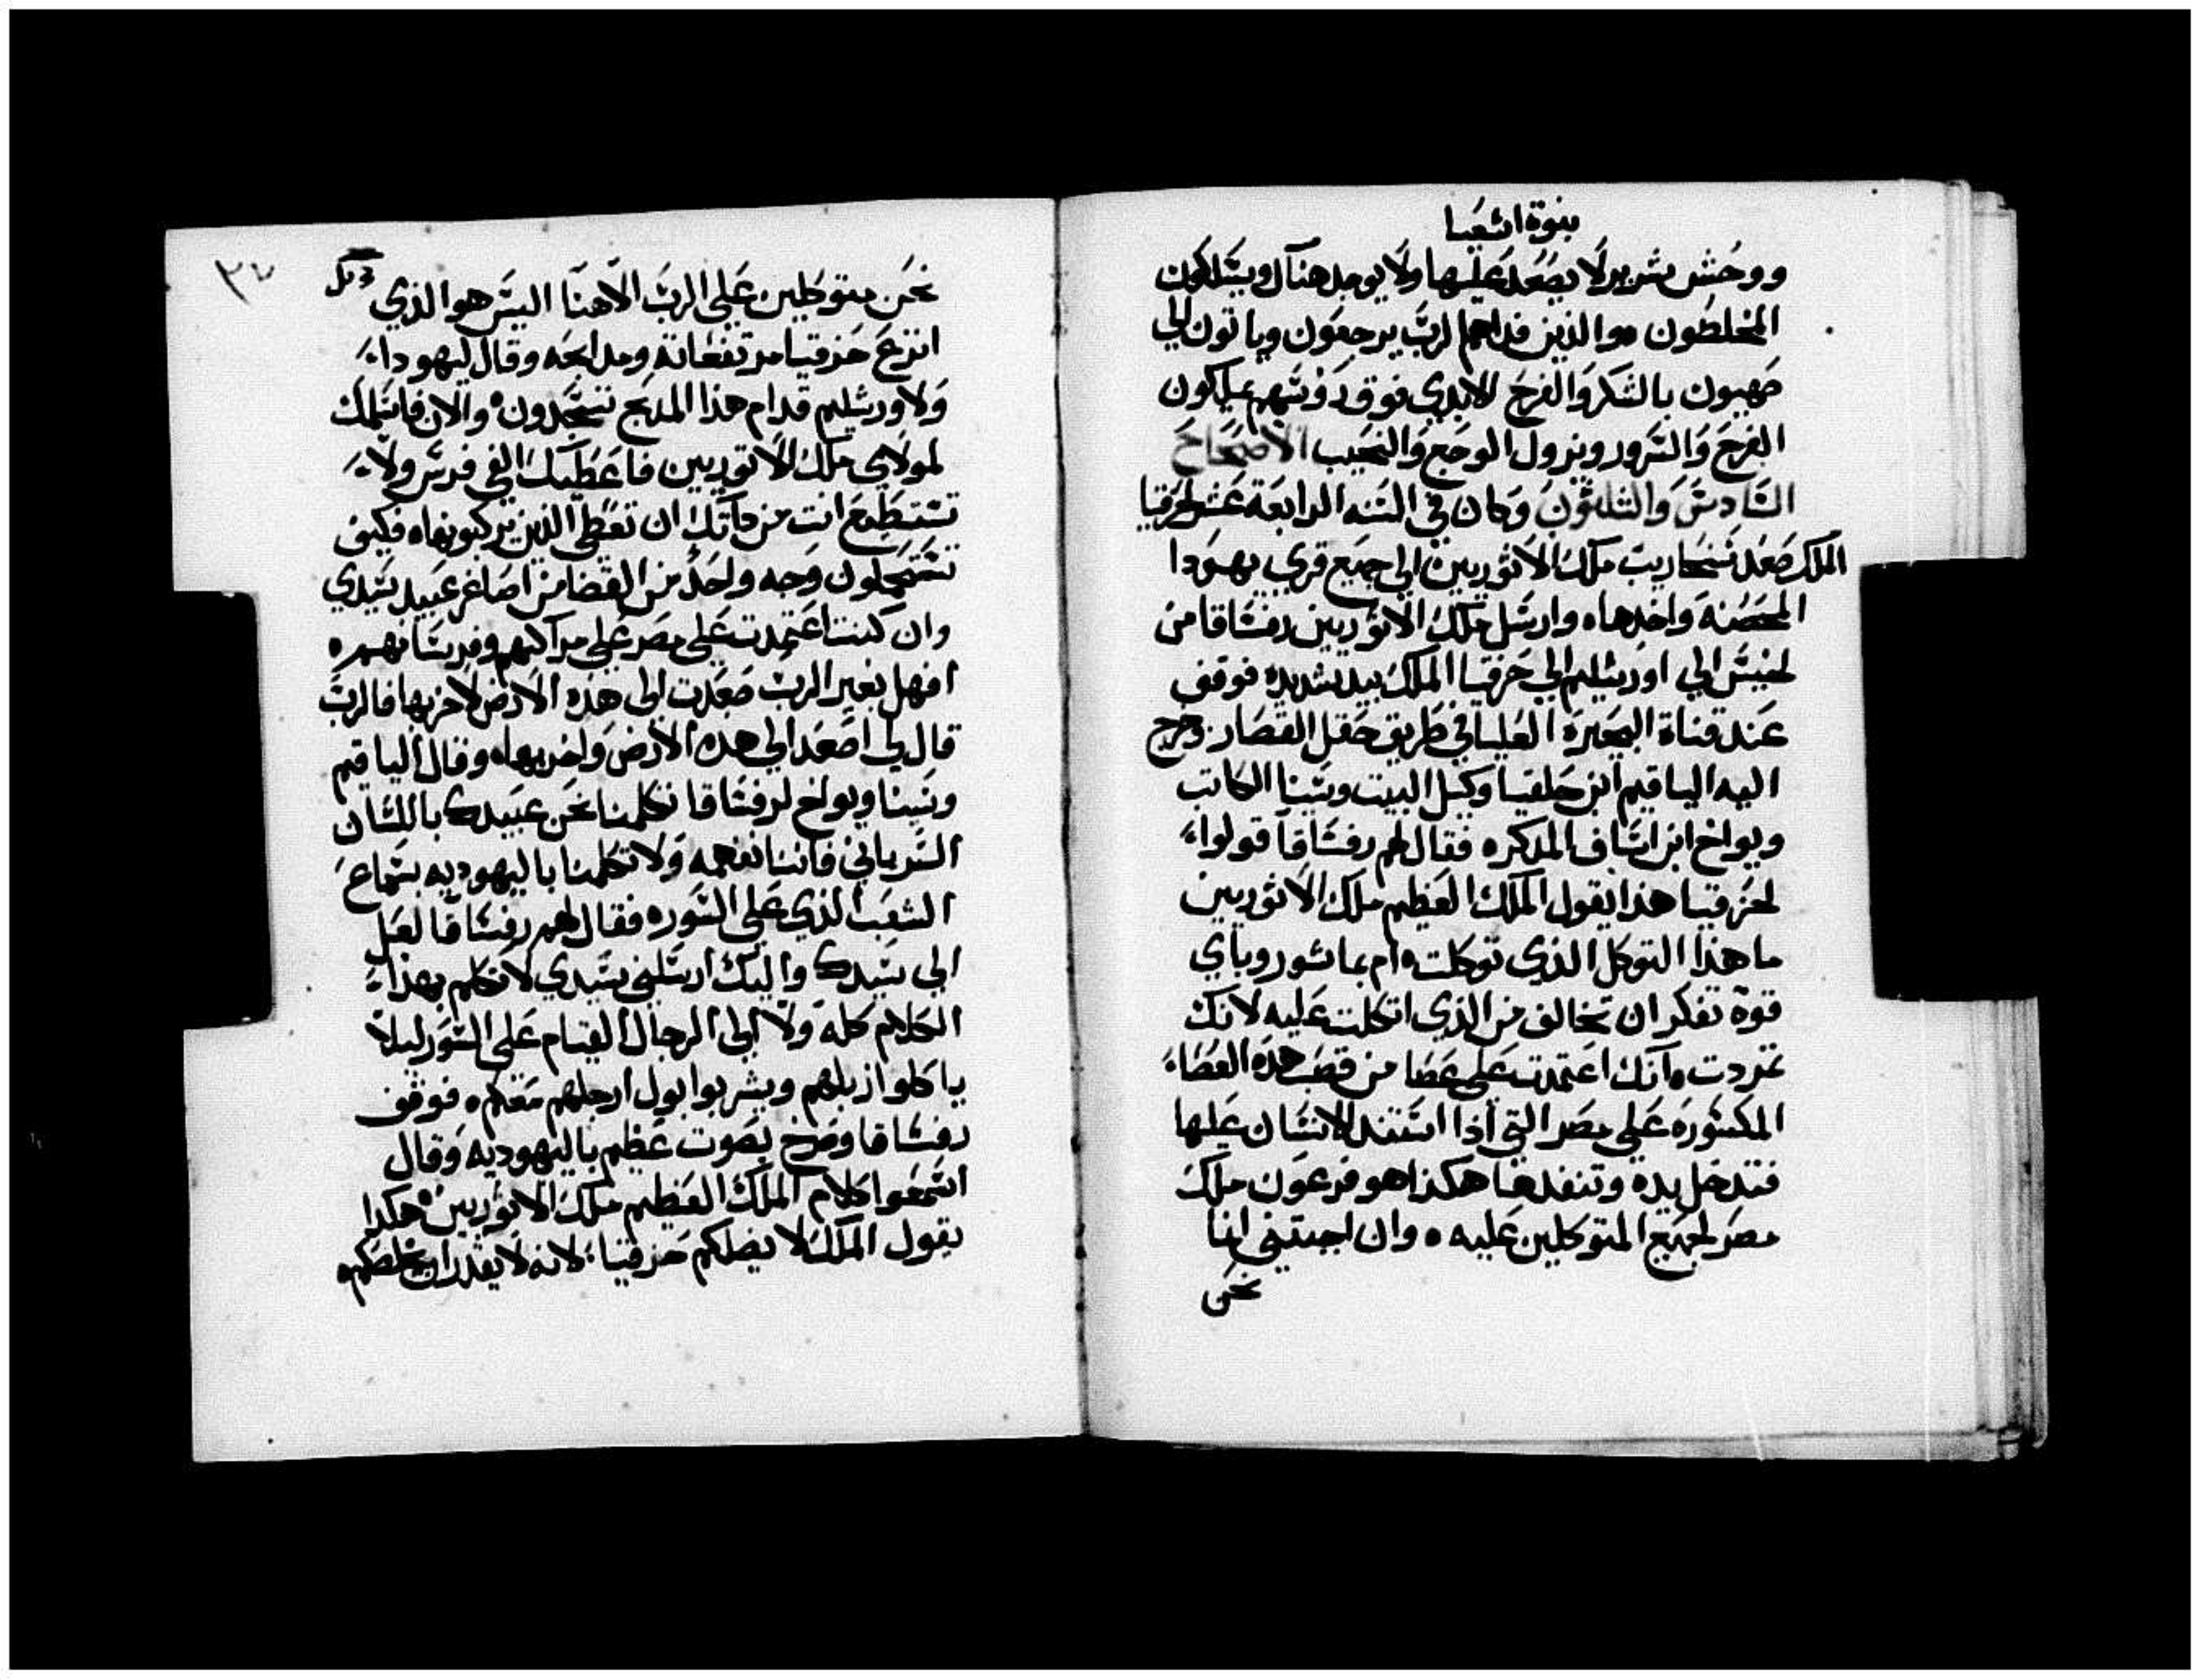 بنوة اشعيا
ووحش شرير لا يصعد عليها ولا يوجد هناك ويسلكون
المخلطون ٥ والذين فداهم الرب يرجعون وياتون الي
صهيون بالشكر والفرح الابدي فوق روسهم يملكون
الفرح والسرور ويزول الوجع والنحيب الاصحاح
السادس والثلثون وكان في السنه الرابعة عشر لحزقيا
الملك صعد سنحاريب ملك الاثوريين الي جميع قري يهودا
المحصنه واخدها ٥ وارسل ملك الاثوريين رفساقا من
لخيس الي اورشليم الي حزقيا الملك بيد شديده فوقف
عند قناة البحيرة العليا في طريق حقل القصار وخرج
اليه الياقيم ابن حلقيا وكيل البيت وسبنا الكاتب
ويواخ ابن اساف المذكره فقال لهم رفساقا قولوا
لحزقيا هذا يقول الملك العظيم ملك الاثوريين
ما هذا التوكل الذي توكلت ٥ ام بماشور وباي
قوة تفكر ان تخالف من الذي اتكلت عليه لانك
تمردت ٥ انك اعتمدت علي عصا من قصب هذه العصاء
المكسوره علي مصر التي اذا استند الانسان عليها
فتدخل يده وتنفدها هكذا هو فرعون ملك
مصر لجميع المتوكلين عليه ٥ وان اجبتني اننا
نحن
٣٧
نحن متوكلين علي الرب الاهنا اليس هو الذي
انتزع حزقيا مرتفعاته ومدابحه وقال ليهودا
ولاورشليم قدام هذا المدبح تسجدون ٥ والان فاسلمك
لمولاي ملك الاثوريين فاعطيك الفي فرس ولا
تستطيع انت من داتك ان تعطي الذين يركبونها ٥ فكيف
تستحملون وجه واحد من القضا من اصاغر عبيد سيدي
وان كنت اعتمدت علي مصر علي مراكبهم وفرسانهم ٥
افهل بغير الرب صعدت الي هذه الارض لاخربها فالرب
قال لي اصعد الي هذه الارض واخربها ٥ وقال الياقيم
وسبنا ويواخ لرفساقا نكلمنا نحن عبيدك باللسان
السرياني فاننا نفهمه ولا تكلمنا باليهوديه بسماع
الشعب الذي علي السوره فقال لهم رفساقا لعل
الي سيدك واليك ارسلني سيدي لاتكلم بهذا
الكلام كله ولا الي الرجال القيام علي السور ليلا
ياكلوا زبلهم ويشربوا بول ارجلهم معكم ٥ فوقف
رفساقا وصرخ بصوت عظيم باليهوديه وقال
اسمعوا كلام الملك العظيم ملك الاثوريين ٥ هكدا
يقول الملك لا يضلكم حزقيا لانه لا يقدر ان يخلصكم ٥